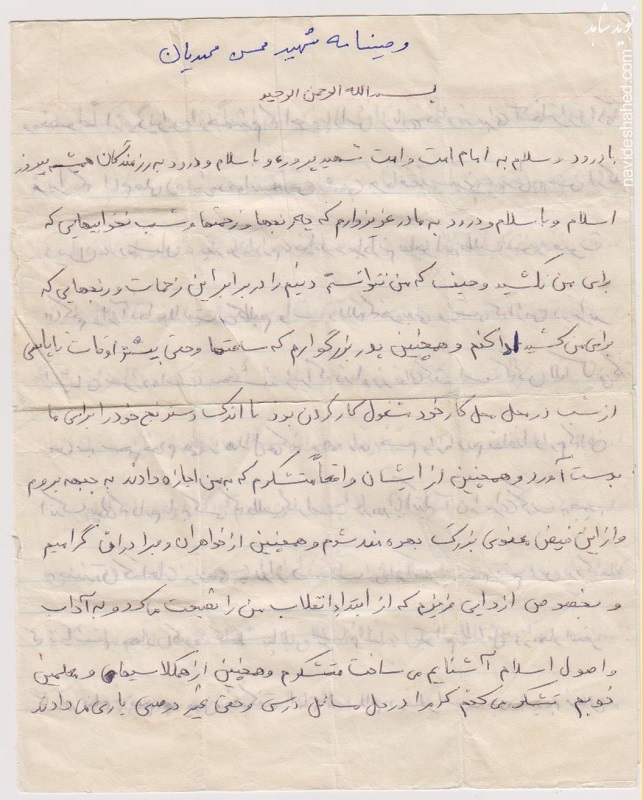 وصیتنامه شهید محسن محمدیان
بسم الله الرحمن الرحیم
با درود و سلام به امام امت و امت شهید پرور و با سلام و درود به رزمندگان همیشه پیروز
اسلام و با سلام و درود به مادر عزیزوارم که چه رنجها و زحمتها و شب نخوابیهایی که
برای من نکشید و حیف که من نتوانسته دینم را در برابر این زحمات و رنجهایی که
برای من کشید ادا کنم و همچنین پدر بزرگوارم که ساعتها و حتی بیشتر اوقات تا پاسی
از شب در محل کار خود مشغول کار کردن بود تا اندک دسترنج خود را برای ما
بدست آورد و همچنین از ایشان واقعاً متشکرم که به من اجازه دادند به جبهه بروم
و از این فیض معنوی بزرگ بهره مند شوم و همچنین از خواهران و برادران گرامیم
و بخصوص از دایی عزیزم که از ابتداء انقلاب من را نصیحت می کرد و به آداب
و اصول اسلام آشنایم می ساخت متشکرم و همچنین از همکلاسیهای و معلمین
خوبم تشکر می کنم که مرا در حل مسائل درسی و حتی غیر درسی یاری می دادند
نوید شاهد
navideshahed.com